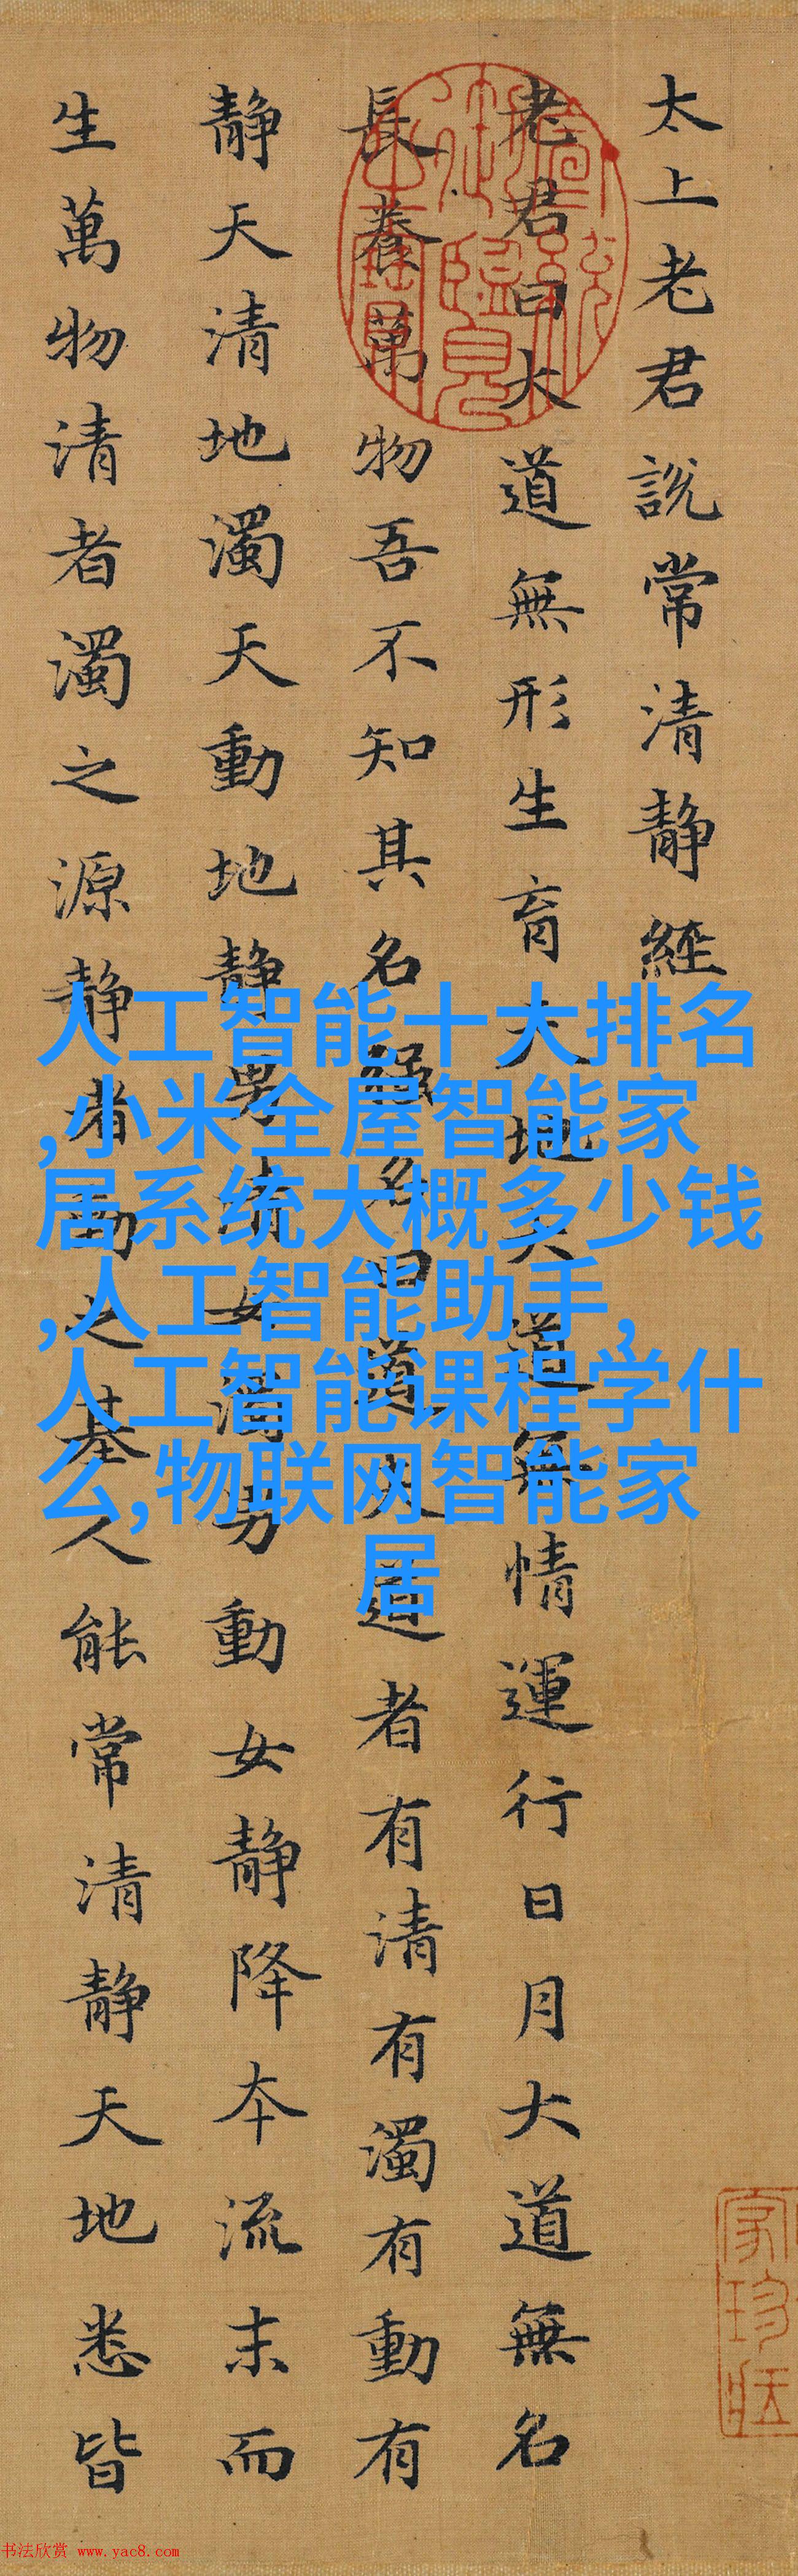 太上老君說常清静經
老君曰大道無形生育天地大道無情運行日月大道無名
長養萬物吾不知其名強名曰道夫道者有清有濁有動有
静天清地濁天動地静男清女濁男動女静降本流末而
生萬物清者濁之源静者動之基人能常清静天地悉皆
宣統御覽之寶
人工智能十大排名
,小米全屋智能家
居系统大概多少钱
,人工智能助手,
人工智能课程学什
么,物联网智能家
居
书法欣赏 www.yac8.com